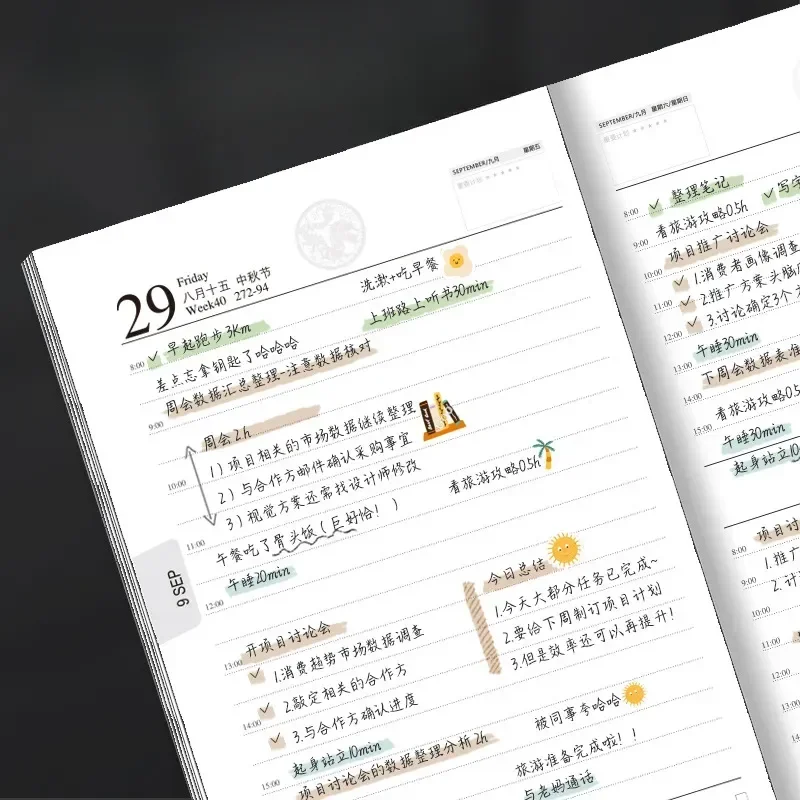 SEPTEMBER/九月 星期五
29
Friday
八月十五 中秋节
Week40 272-94
洗漱+吃早餐
8:00 早起跑步3km
上班路上听书30min
差点忘拿钥匙了哈哈哈
9:00 周会数据汇总整理-注意数据核对
周会2h
1)项目相关的市场数据继续整理
10:00 2)与合作方邮件确认采购事宜
3)视觉方案还需找设计师修改
看旅游攻略0.5h
11:00 午餐吃了骨头饭(巨好恰!)
午睡20min
12:00
9 SEP
今日总结
1.今天大部分任务已完成~
2.要给下周制订项目计划
3.但是效率还可以再提升!
开项目讨论会
13:00 1.消费趋势市场数据调查
2.敲定相关的合作方
14:00 3.与合作方确认进度
被同事夸哈哈
起身站立10min
旅游准备完成啦!!
15:00 项目讨论会的数据整理分析2h
与老妈通话
SEPTEMBER/九月 星期六/星期日
8:00 整理笔记
写字
看旅游攻略0.5h
9:00 项目推广讨论会
10:00 1.消费者画像调查
11:00 2.推广方案头脑
12:00 3.讨论确定3个
午睡30min
13:00 下周会数据表准
14:00
看旅游攻略0.5
15:00 午睡30min
起身站立10
8:00 项目讨
1.推广
9:00 2.计
10:00
11:00
12:00
13:00
14:00